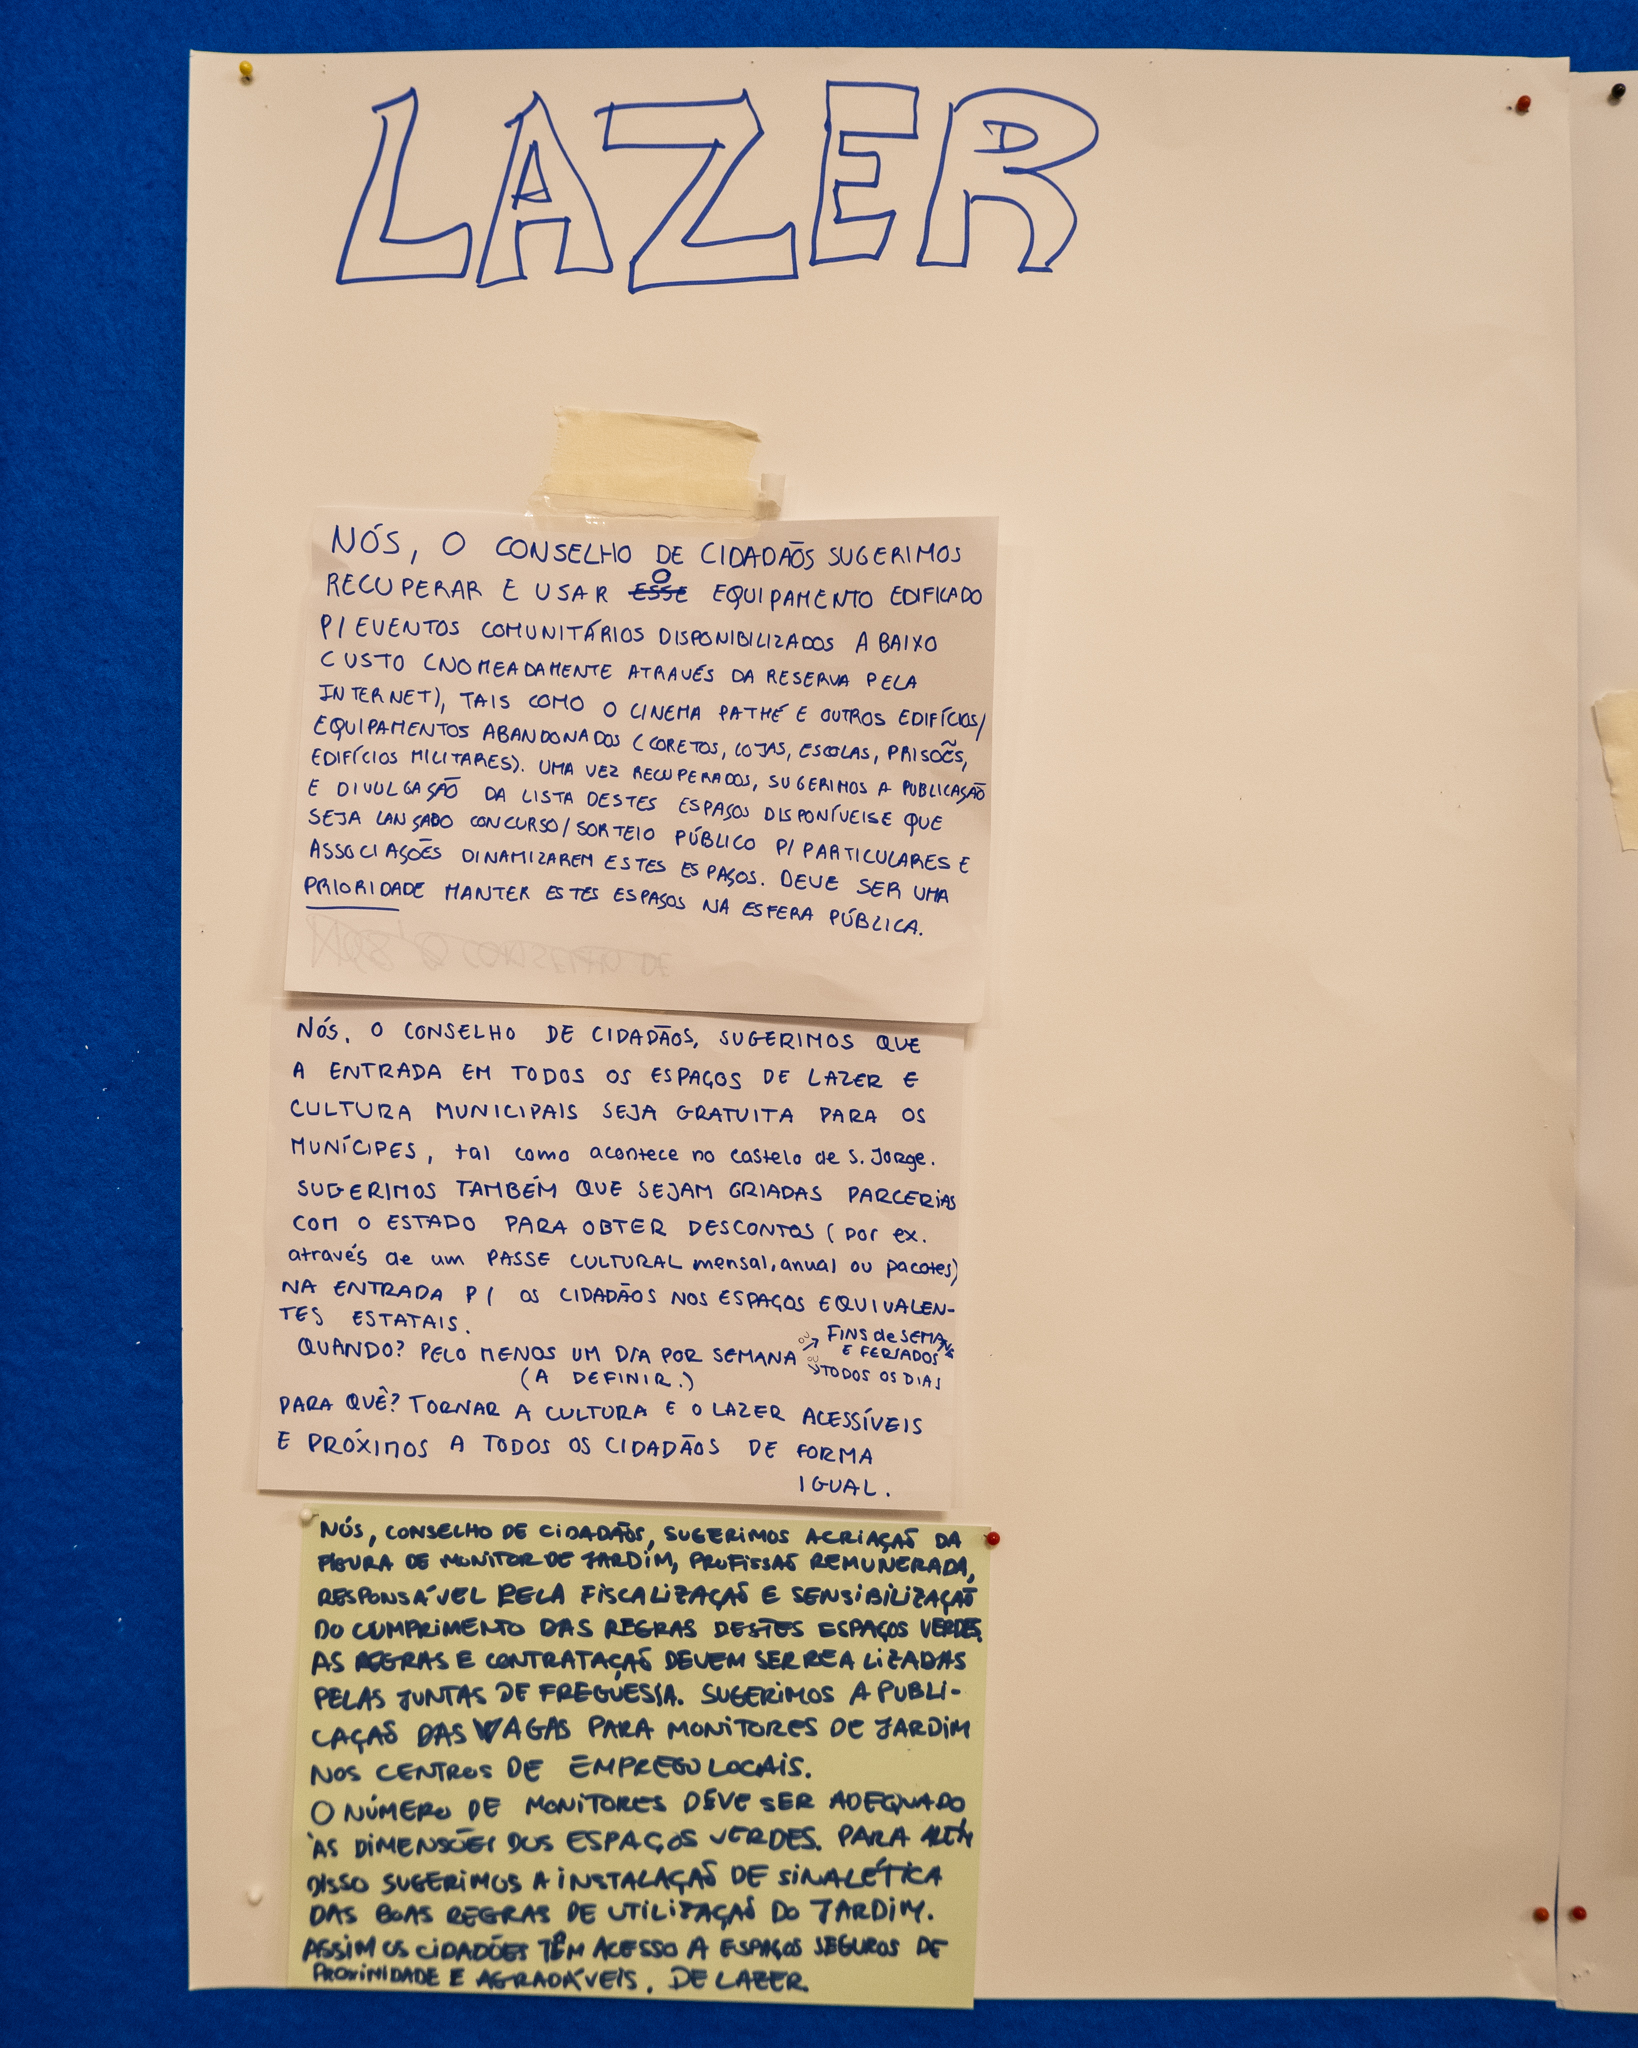 LAZER
NÓS, O CONSELHO DE CIDADÃOS SUGERIMOS
RECUPERAR E USAR O EQUIPAMENTO EDIFICADO
P/ EVENTOS COMUNITÁRIOS DISPONIBILIZADOS A BAIXO
CUSTO (NOMEADAMENTE ATRAVÉS DA RESERVA PELA
INTERNET), TAIS COMO O CINEMA PATHÉ E OUTROS EDIFÍCIOS/
EQUIPAMENTOS ABANDONADOS (CORETOS, LOJAS, ESCOLAS, PRISOẼS,
EDIFÍCIOS MILITARES). UMA VEZ RECUPERADOS, SUGERIMOS A PUBLICAÇÃO
E DIVULGAÇÃO DA LISTA DESTES ESPAÇOS DISPONÍVEIS E QUE
SEJA LANÇADO CONCURSO/SORTEIO PÚBLICO P/ PARTICULARES E
ASSOCIAÇÕES DINAMIZAREM ESTES ESPAÇOS. DEVE SER UMA
PRIORIDADE MANTER ESTES ESPAÇOS NA ESFERA PÚBLICA.
NÓS, O CONSELHO DE CIDADÃOS, SUGERIMOS QUE
A ENTRADA EM TODOS OS ESPAÇOS DE LAZER E
CULTURA MUNICIPAIS SEJA GRATUITA PARA OS
MUNÍCIPES, tal como acontece no castelo de S. Jorge.
SUGERIMOS TAMBÉM QUE SEJAM CRIADAS PARCERIAS
COM O ESTADO PARA OBTER DESCONTOS (por ex.
através de um PASSE CULTURAL mensal, anual ou pacotes)
NA ENTRADA P/ OS CIDADÃOS NOS ESPAÇOS EQUIVALEN-
TES ESTATAIS.
QUANDO? PELO MENOS UM DIA POR SEMANA
(A DEFINIR.)
ou → FINS de SEMANA
E FERIADOS
ou → TODOS OS DIAS
PARA QUÊ? TORNAR A CULTURA E O LAZER ACESSÍVEIS
E PRÓXIMOS A TODOS OS CIDADÃOS DE FORMA
IGUAL.
NÓS, CONSELHO DE CIDADÃOS, SUGERIMOS A CRIAÇÃO DA
FIGURA DE MONITOR DE JARDIM, PROFISSÃO REMUNERADA,
RESPONSÁVEL PELA FISCALIZAÇÃO E SENSIBILIZAÇÃO
DO CUMPRIMENTO DAS REGRAS DESTES ESPAÇOS VERDES.
AS REGRAS E CONTRATAÇÃO DEVEM SER REALIZADAS
PELAS JUNTAS DE FREGUESIA. SUGERIMOS A PUBLI-
CAÇÃO DAS VAGAS PARA MONITORES DE JARDIM
NOS CENTROS DE EMPREGO LOCAIS.
O NÚMERO DE MONITORES DEVE SER ADEQUADO
ÀS DIMENSÕES DOS ESPAÇOS VERDES. PARA ALÉM
DISSO SUGERIMOS A INSTALAÇÃO DE SINALÉTICA
DAS BOAS REGRAS DE UTILIZAÇÃO DO JARDIM.
ASSIM OS CIDADÕES TÊM ACESSO A ESPAÇOS SEGUROS DE
PROXIMIDADE E AGRADÁVEIS. DE LAZER.